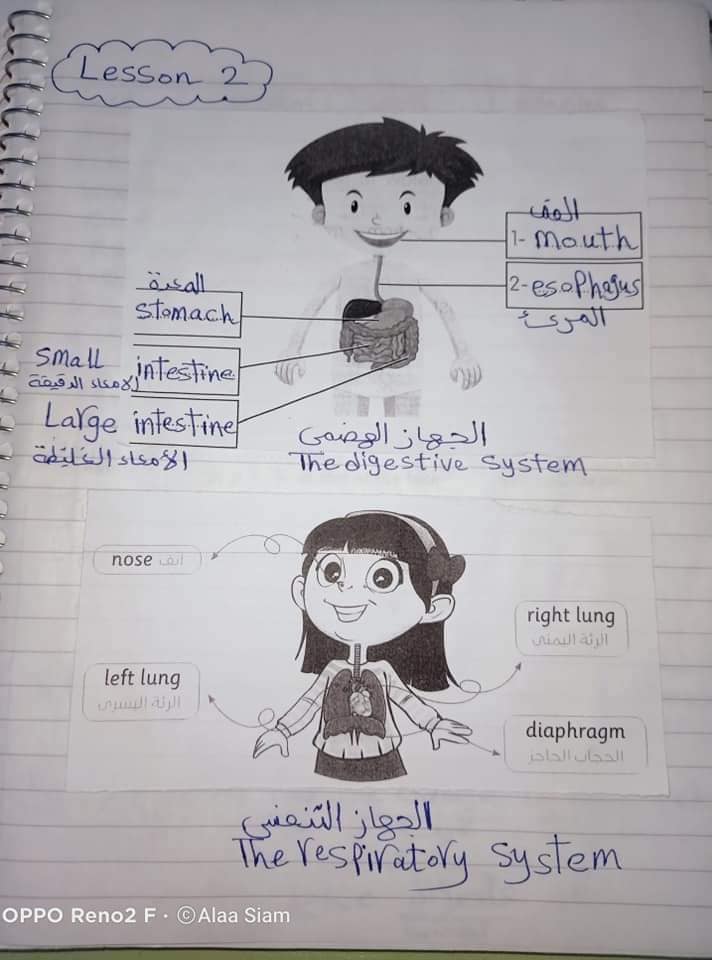 Lesson 2
الفم
1- mouth
2- esophagus
المرئ
المعدة
Stomach
Small intestine
الامعاء الدقيقة
Large intestine
الامعاء الغليظة
الجهاز الهضمى
The digestive system
nose أنف
right lung
الرئة اليمنى
left lung
الرئة اليسرى
diaphragm
الحجاب الحاجز
الجهاز التنفسى
The respiratory system
OPPO Reno2 F · ©Alaa Siam